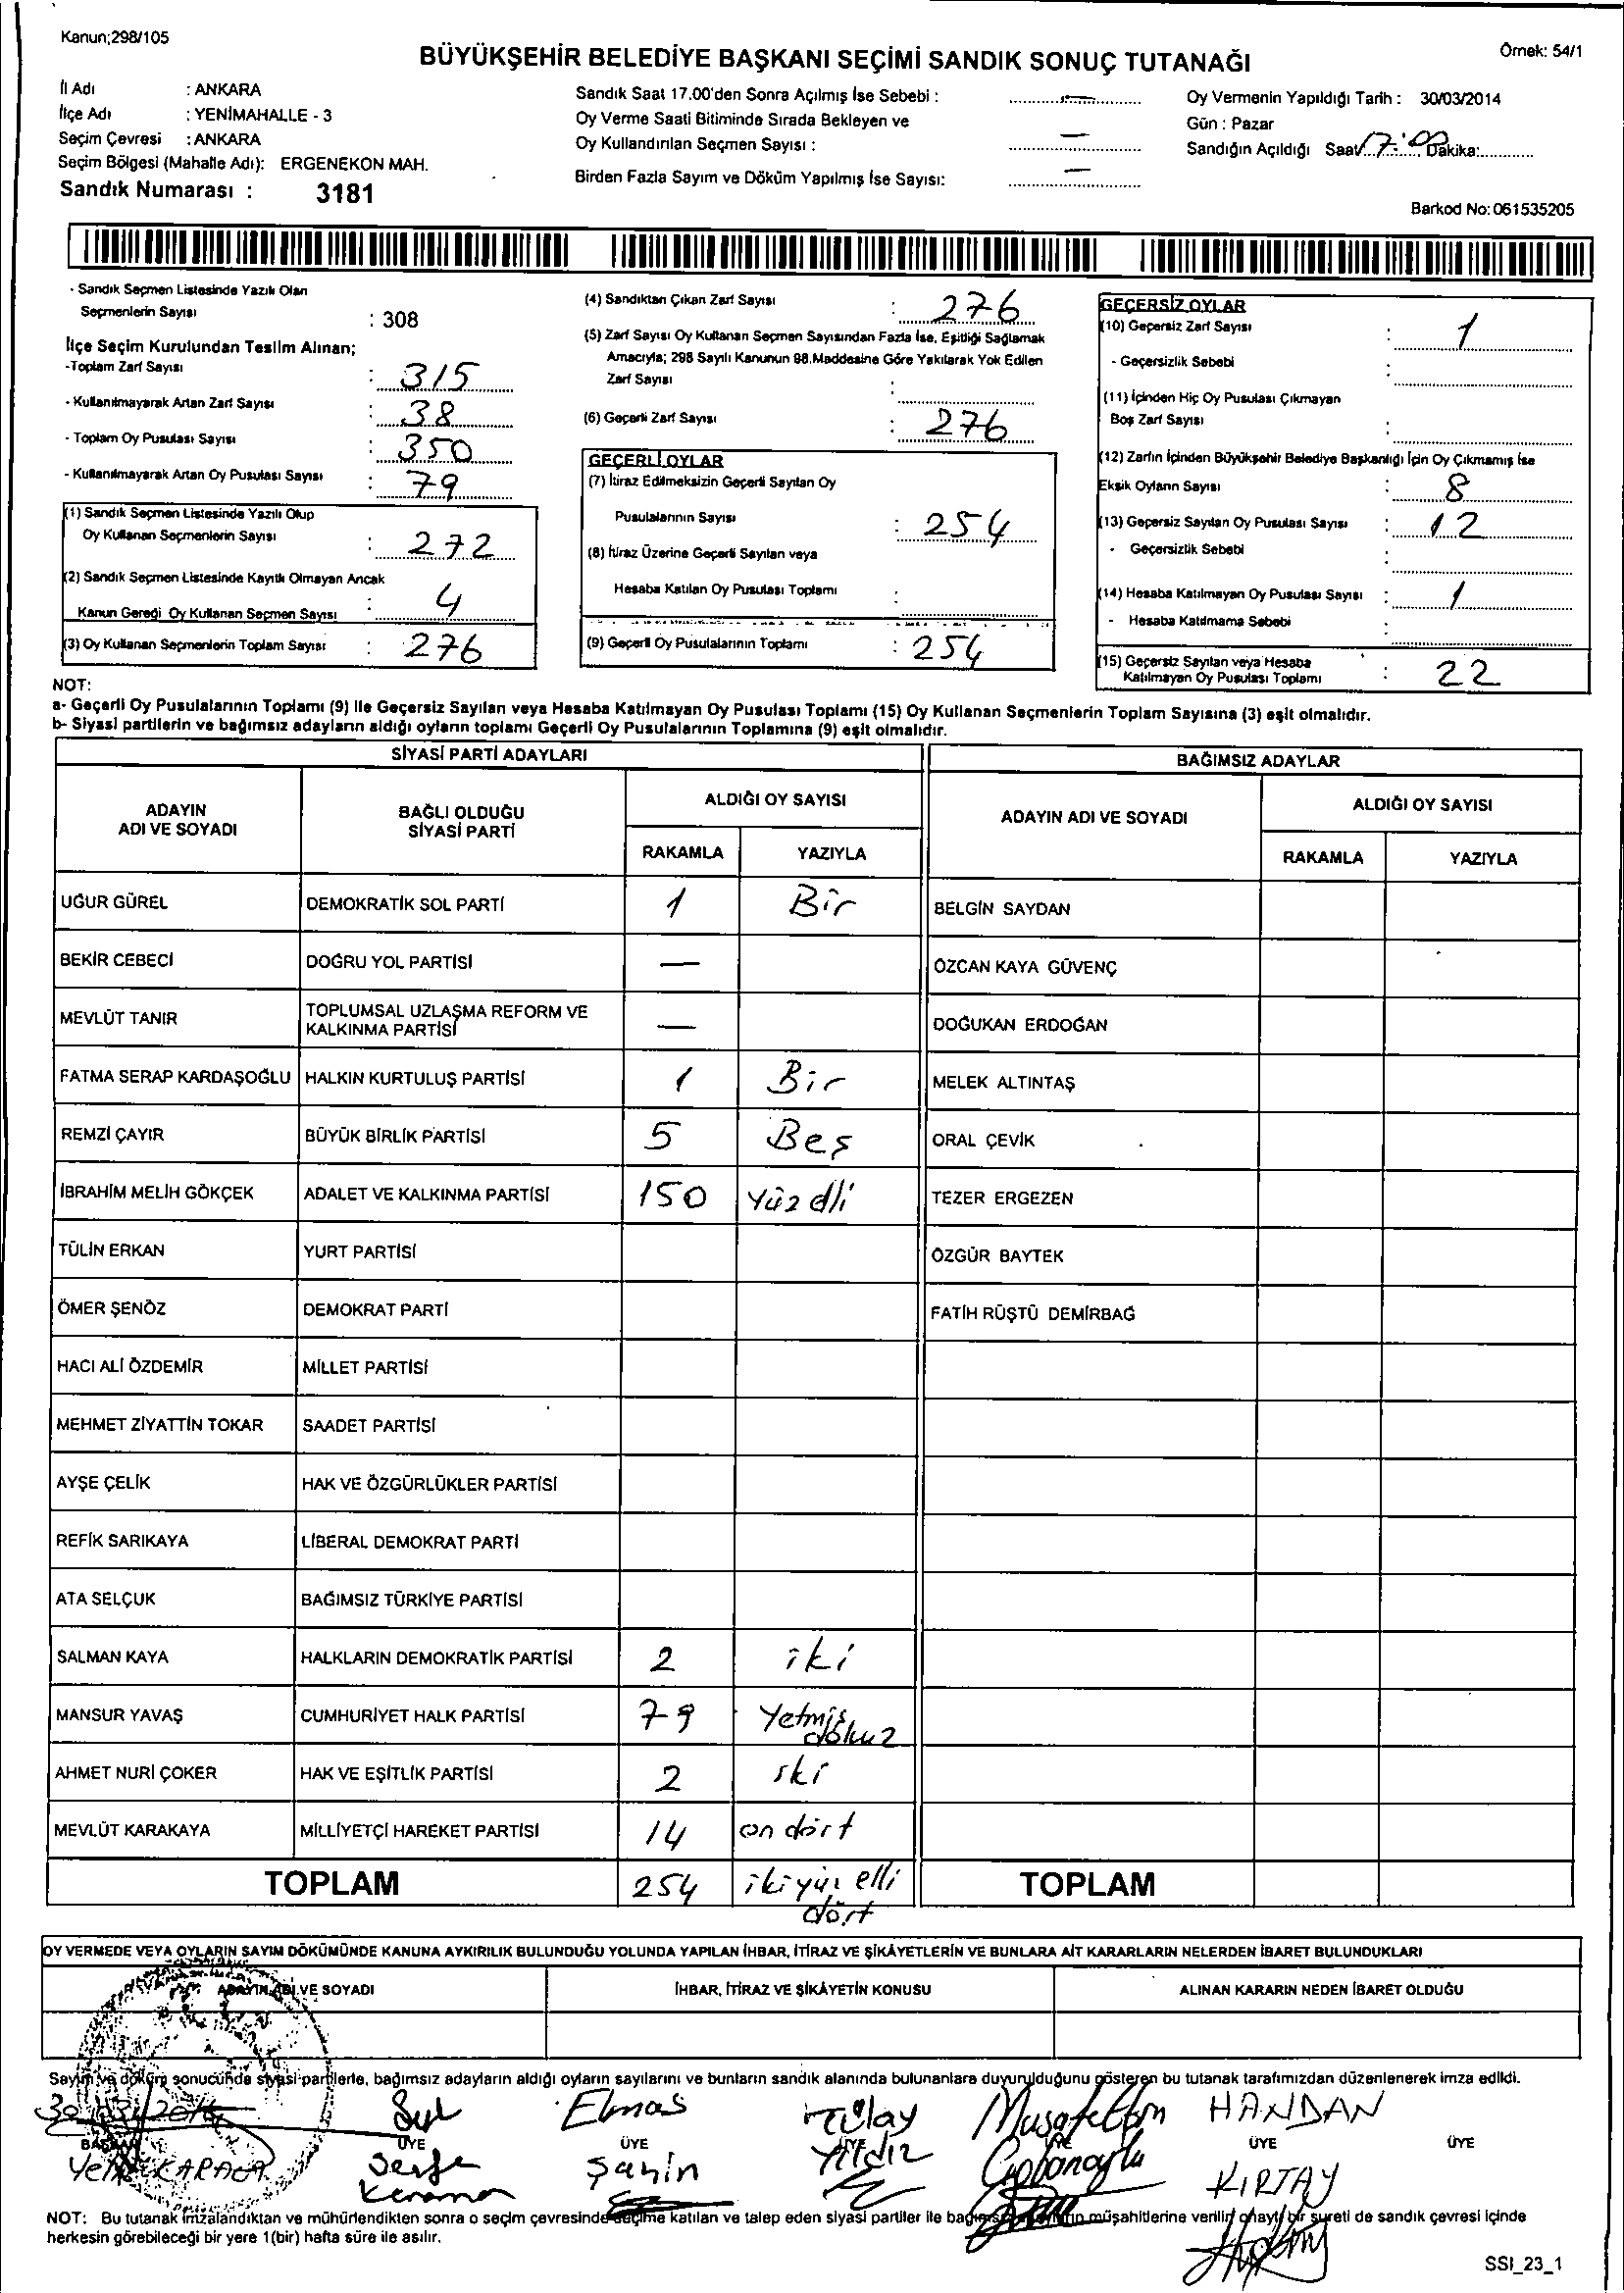 Kanun;298/105
Örnek: 54/1
BÜYÜKŞEHİR BELEDİYE BAŞKANI SEÇİMİ SANDIK SONUÇ TUTANAĞI
İl Adı : ANKARA
İlçe Adı : YENİMAHALLE - 3
Seçim Çevresi : ANKARA
Seçim Bölgesi (Mahalle Adı): ERGENEKON MAH.
Sandık Numarası : 3181
Sandık Saat 17.00'den Sonra Açılmış İse Sebebi : —
Oy Verme Saati Bitiminde Sırada Bekleyen ve
Oy Kullandırılan Seçmen Sayısı : —
Birden Fazla Sayım ve Döküm Yapılmış İse Sayısı: —
Oy Vermenin Yapıldığı Tarih : 30/03/2014
Gün : Pazar
Sandığın Açıldığı Saat 17:00 Dakika:
Barkod No:061535205
- Sandık Seçmen Listesinde Yazılı Olan
Seçmenlerin Sayısı : 308
İlçe Seçim Kurulundan Teslim Alınan;
-Toplam Zarf Sayısı : 315
- Kullanılmayarak Artan Zarf Sayısı : 38
- Toplam Oy Pusulası Sayısı : 350
- Kullanılmayarak Artan Oy Pusulası Sayısı : 79
(1) Sandık Seçmen Listesinde Yazılı Olup
Oy Kullanan Seçmenlerin Sayısı : 272
(2) Sandık Seçmen Listesinde Kayıtlı Olmayan Ancak
Kanun Gereği Oy Kullanan Seçmen Sayısı : 4
(3) Oy Kullanan Seçmenlerin Toplam Sayısı : 276
(4) Sandıktan Çıkan Zarf Sayısı : 276
(5) Zarf Sayısı Oy Kullanan Seçmen Sayısından Fazla İse, Eşitliği Sağlamak
Amacıyla; 298 Sayılı Kanunun 98.Maddesine Göre Yakılarak Yok Edilen
Zarf Sayısı :
(6) Geçerli Zarf Sayısı : 276
GEÇERLİ OYLAR
(7) İtiraz Edilmeksizin Geçerli Sayılan Oy
Pusulalarının Sayısı : 254
(8) İtiraz Üzerine Geçerli Sayılan veya
Hesaba Katılan Oy Pusulası Toplamı :
(9) Geçerli Oy Pusulalarının Toplamı : 254
GEÇERSİZ OYLAR
(10) Geçersiz Zarf Sayısı : 1
- Geçersizlik Sebebi :
(11) İçinden Hiç Oy Pusulası Çıkmayan
Boş Zarf Sayısı :
(12) Zarfın İçinden Büyükşehir Belediye Başkanlığı İçin Oy Çıkmamış İse
Eksik Oyların Sayısı : 8
(13) Geçersiz Sayılan Oy Pusulası Sayısı : 12
- Geçersizlik Sebebi :
(14) Hesaba Katılmayan Oy Pusulası Sayısı : 1
- Hesaba Katılmama Sebebi :
(15) Geçersiz Sayılan veya Hesaba
Katılmayan Oy Pusulası Toplamı : 22
NOT:
a- Geçerli Oy Pusulalarının Toplamı (9) İle Geçersiz Sayılan veya Hesaba Katılmayan Oy Pusulası Toplamı (15) Oy Kullanan Seçmenlerin Toplam Sayısına (3) eşit olmalıdır.
b- Siyasi partilerin ve bağımsız adayların aldığı oyların toplamı Geçerli Oy Pusulalarının Toplamına (9) eşit olmalıdır.
SİYASİ PARTİ ADAYLARI BAĞIMSIZ ADAYLAR
ADAYIN ADI VE SOYADI BAĞLI OLDUĞU SİYASİ PARTİ ALDIĞI OY SAYISI ADAYIN ADI VE SOYADI ALDIĞI OY SAYISI
RAKAMLA YAZIYLA RAKAMLA YAZIYLA
UĞUR GÜREL DEMOKRATİK SOL PARTİ 1 Bir BELGİN SAYDAN
BEKİR CEBECİ DOĞRU YOL PARTİSİ — ÖZCAN KAYA GÜVENÇ
MEVLÜT TANIR TOPLUMSAL UZLAŞMA REFORM VE KALKINMA PARTİSİ — DOĞUKAN ERDOĞAN
FATMA SERAP KARDAŞOĞLU HALKIN KURTULUŞ PARTİSİ 1 Bir MELEK ALTINTAŞ
REMZİ ÇAYIR BÜYÜK BİRLİK PARTİSİ 5 Beş ORAL ÇEVİK
İBRAHİM MELİH GÖKÇEK ADALET VE KALKINMA PARTİSİ 150 Yüz elli TEZER ERGEZEN
TÜLİN ERKAN YURT PARTİSİ ÖZGÜR BAYTEK
ÖMER ŞENÖZ DEMOKRAT PARTİ FATİH RÜŞTÜ DEMİRBAĞ
HACI ALİ ÖZDEMİR MİLLET PARTİSİ
MEHMET ZİYATTİN TOKAR SAADET PARTİSİ
AYŞE ÇELİK HAK VE ÖZGÜRLÜKLER PARTİSİ
REFİK SARIKAYA LİBERAL DEMOKRAT PARTİ
ATA SELÇUK BAĞIMSIZ TÜRKİYE PARTİSİ
SALMAN KAYA HALKLARIN DEMOKRATİK PARTİSİ 2 iki
MANSUR YAVAŞ CUMHURİYET HALK PARTİSİ 79 Yetmiş dokuz
AHMET NURİ ÇOKER HAK VE EŞİTLİK PARTİSİ 2 iki
MEVLÜT KARAKAYA MİLLİYETÇİ HAREKET PARTİSİ 14 on dört
TOPLAM 254 iki yüz elli dört TOPLAM
OY VERMEDE VEYA OYLARIN SAYIM DÖKÜMÜNDE KANUNA AYKIRILIK BULUNDUĞU YOLUNDA YAPILAN İHBAR, İTİRAZ VE ŞİKÂYETLERİN VE BUNLARA AİT KARARLARIN NELERDEN İBARET BULUNDUKLARI
ADAYIN ADI VE SOYADI İHBAR, İTİRAZ VE ŞİKÂYETİN KONUSU ALINAN KARARIN NEDEN İBARET OLDUĞU
Sayım ve döküm sonucunda siyasi partilerle, bağımsız adayların aldığı oyların sayılarını ve bunların sandık alanında bulunanlara duyurulduğunu gösteren bu tutanak tarafımızdan düzenlenerek imza edildi.
30/03/2014 Elmas Tülay HANDAN
BAŞKAN ÜYE ÜYE ÜYE ÜYE ÜYE ÜYE
KARACA Şahin Yıldız Çobanoğlu KIRTAY
NOT: Bu tutanak imzalandıktan ve mühürlendikten sonra o seçim çevresinde seçime katılan ve talep eden siyasi partiler ile müşahitlerine verilir onaylı bir sureti de sandık çevresi içinde
herkesin görebileceği bir yere 1(bir) hafta süre ile asılır.
SSI_23_1